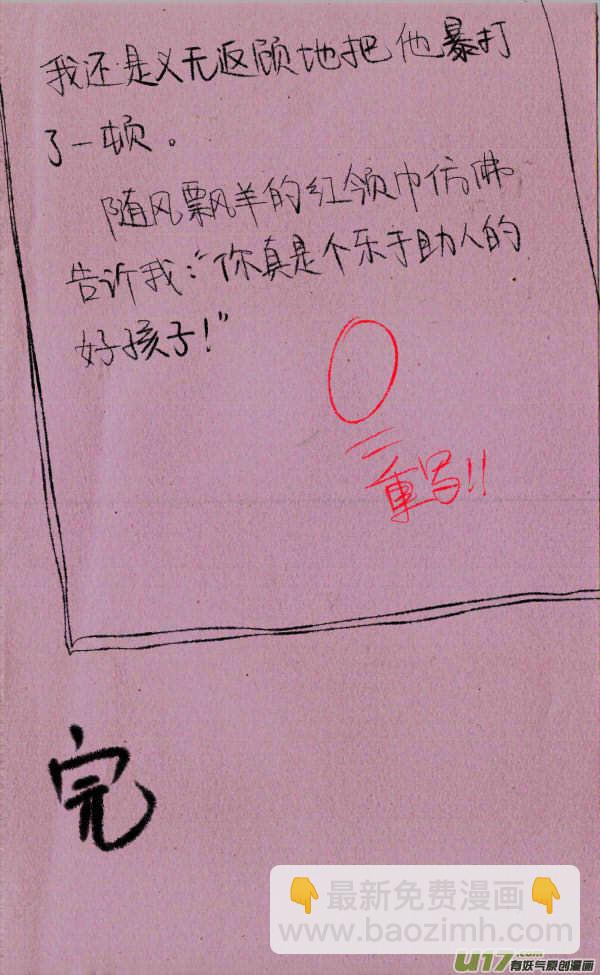 我还是义无返顾地把他暴打
了一顿。
随风飘羊的红领巾仿佛
告诉我：“你真是个乐于助人的
好孩子！”
0
重写!!
完
👇最新免费漫画👇
www.baozimh.com
U17.com
有妖气原创漫画